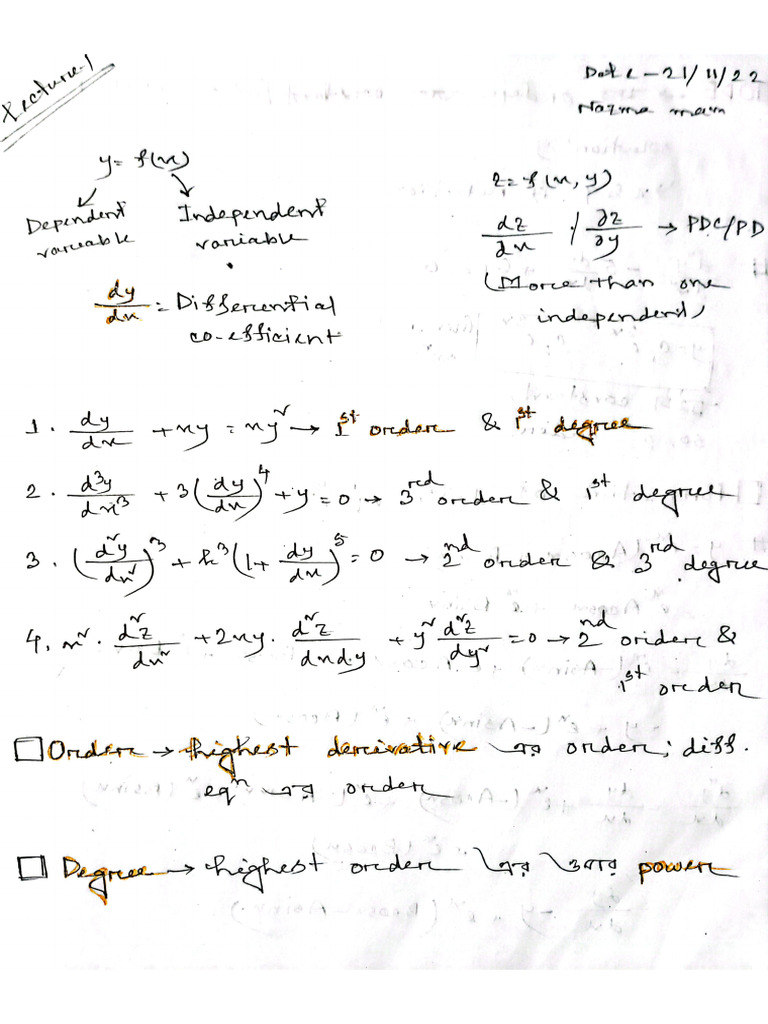 Lecture-1
Date - 21/11/22
Nazma mam
y = f(x)
Dependent variable
Independent variable
dy/dx = Differential co-efficient
z = f(x, y)
dz/dx / ∂z/∂y → PDC/PD
(More than one independent)
1. dy/dx + xy = xy² → 1st order & 1st degree
2. d³y/dx³ + 3(dy/dx)⁴ + y = 0 → 3rd order & 1st degree
3. (d²y/dx²)³ + k³(1 + dy/dx)⁵ = 0 → 2nd order & 3rd degree
4. x² · d²z/dx² + 2xy · d²z/dxdy + y² d²z/dy² = 0 → 2nd orider &
1st order
Order → highest derivative এর order; diff.
eqⁿ এর order
Degree → highest order এর power